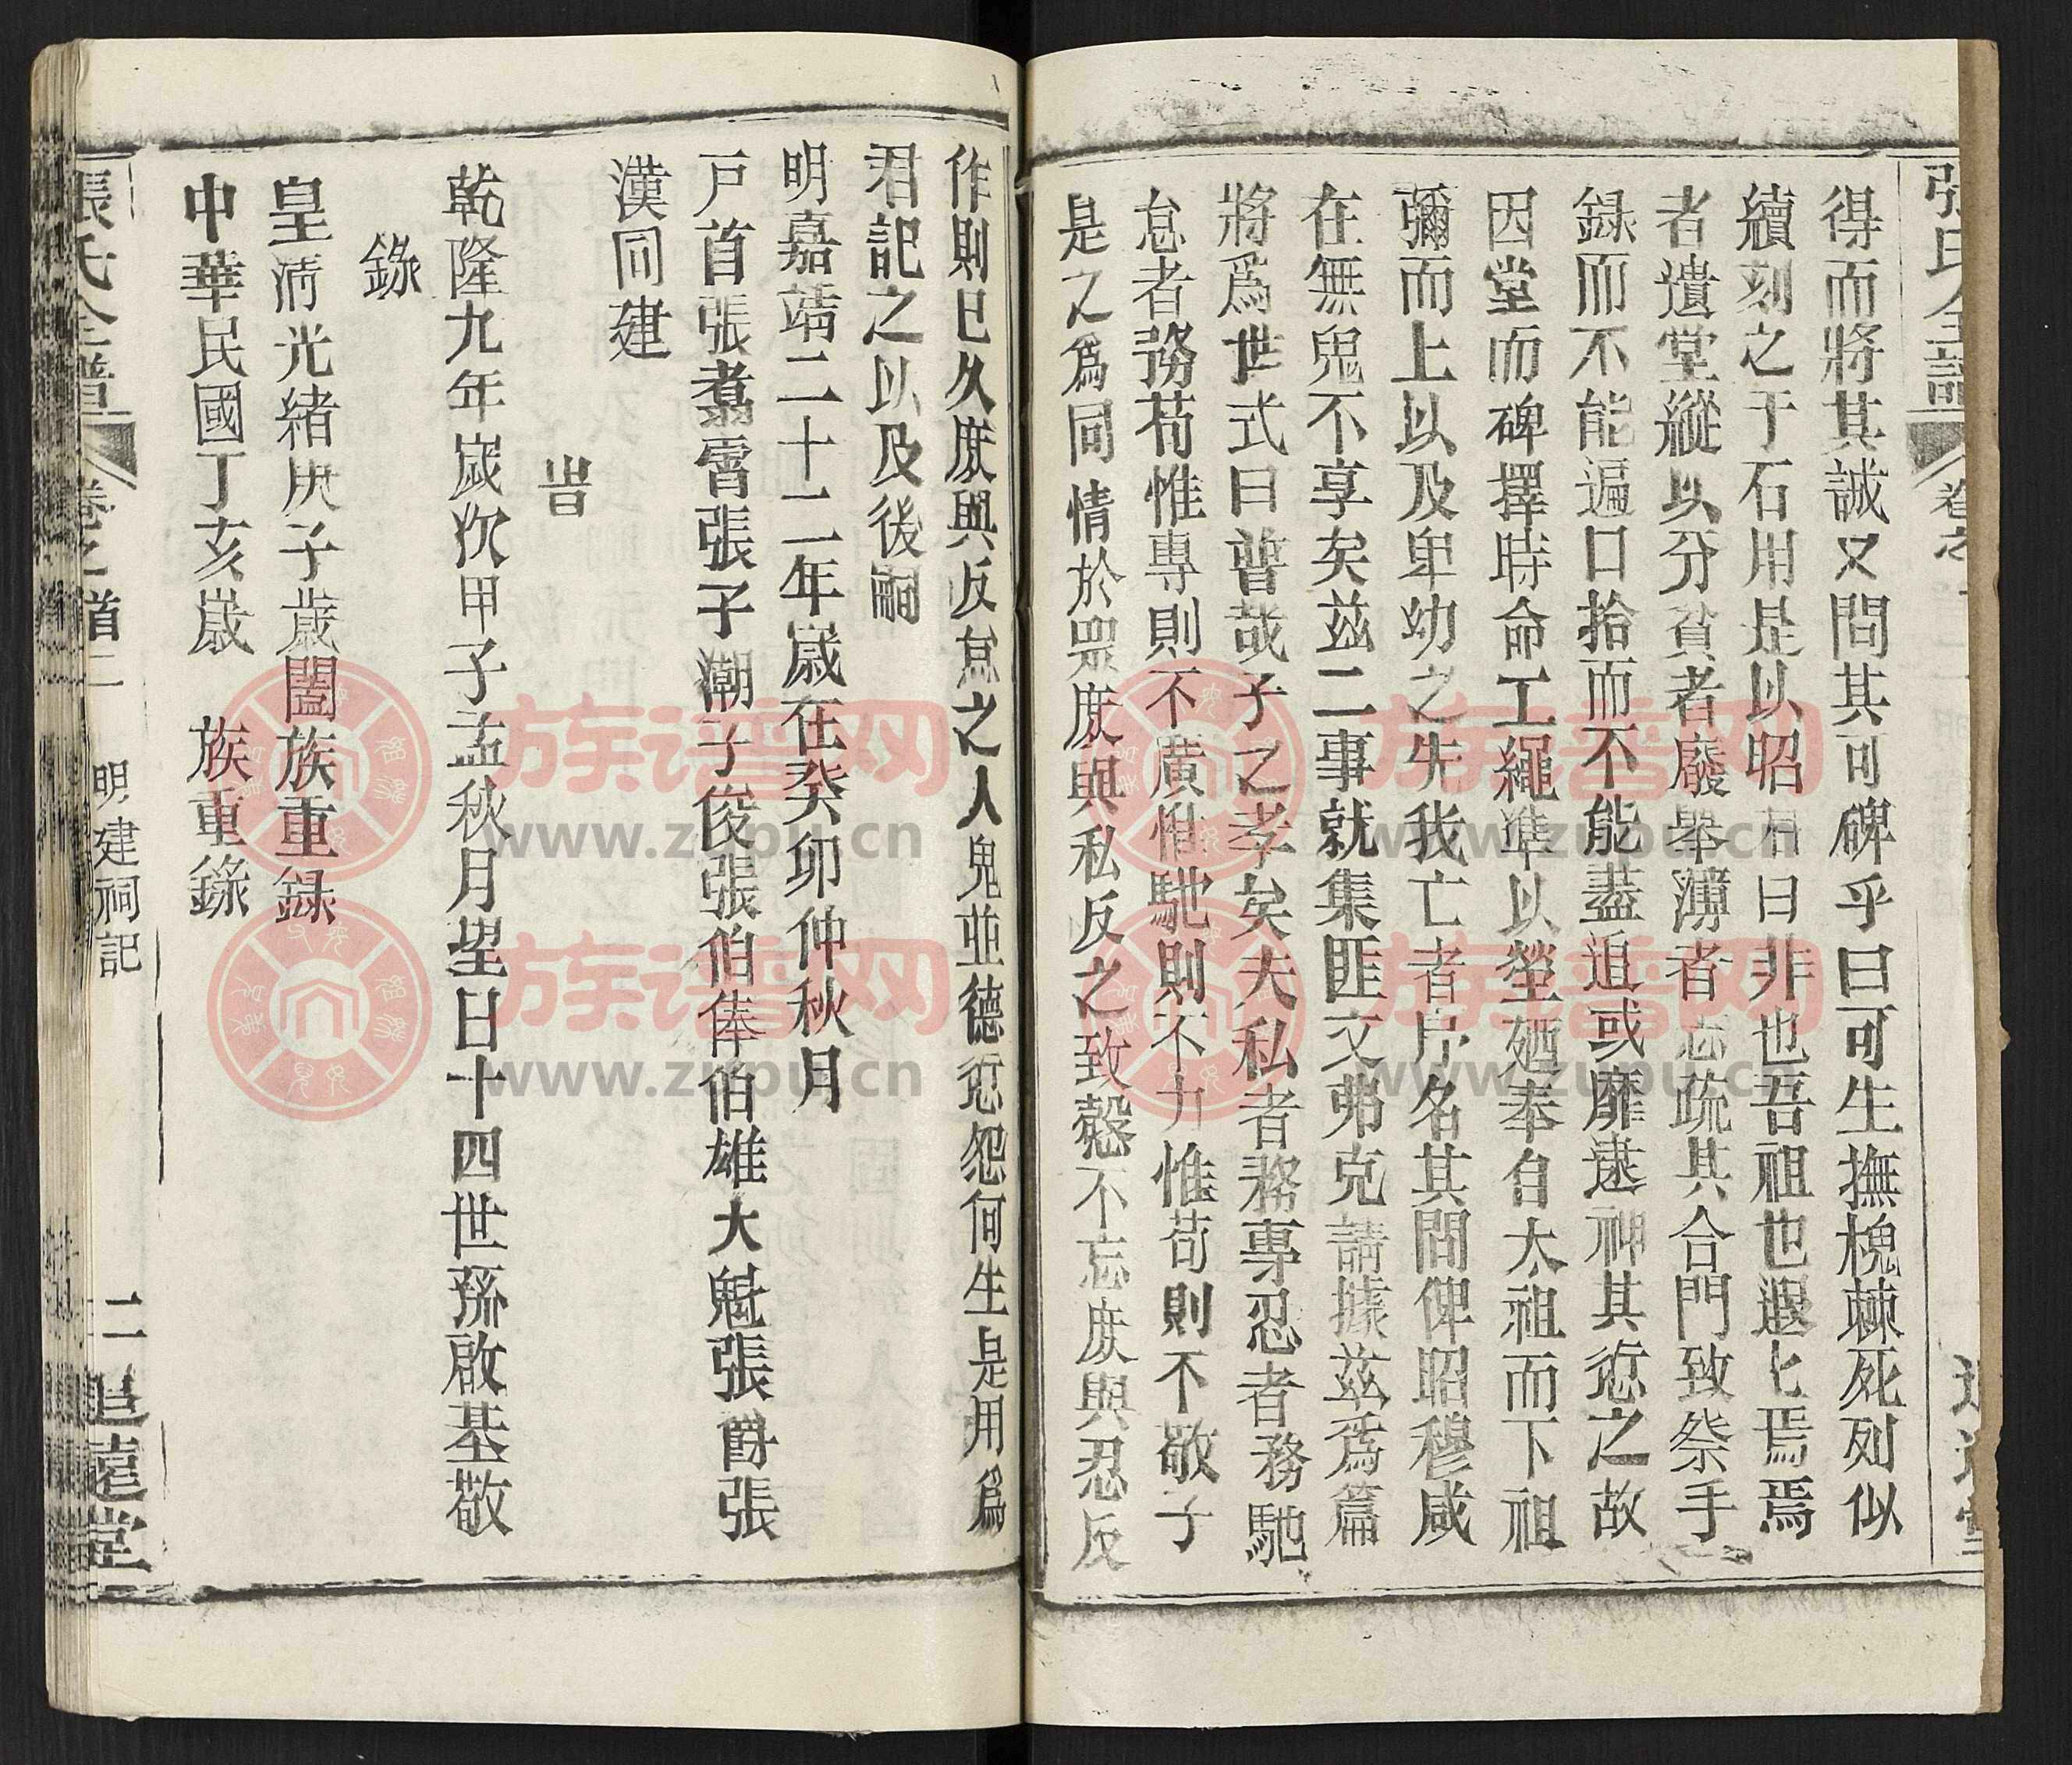 得而將其誠又問其可碑乎曰可生撫槐棘死列似
續刻之于石用是以昭君曰非也吾祖也遐七焉焉
者遺堂縱以分貧者廢舉薄者忘疏其合門致祭手
錄而不能遍口拾而不能盡迫或靡遠神其愆之故
因堂而碑擇時命工繩準以塋廼奉自太祖而下祖
彌而上以及卑幼之失我亡者序名其間俾昭穆咸
在無鬼不享矣茲二事就集匪文弗克請據茲爲篇
將爲世式曰普哉子之孝矣夫私者務專忍者務馳
怠者務苟惟專則不廣惟馳則不力惟苟則不敬子
是之爲同情於眾庻與私反之致愨不忘庻與忍反
作則已久庻與反怠之人鬼並德愆怨何生是用爲
君記之以及後嗣
明嘉靖二十二年歲在癸卯仲秋月
戸首張翥霄張子潮子俊張伯俸伯雄大魁張爵張
漢同建
旹
乾隆九年歲次甲子孟秋月望日十四世孫啟基敬
錄
皇清光緒庚子歲闔族重錄
中華民國丁亥歲 族重錄
張氏全譜 卷之首二 明建祠記 二 追遠堂
族谱网
www.zupu.cn
族谱网
www.zupu.cn
族谱网
www.zupu.cn
族谱网
www.zupu.cn